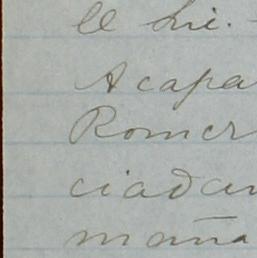 le hi.
Acapa
Romer
ciadan
maña